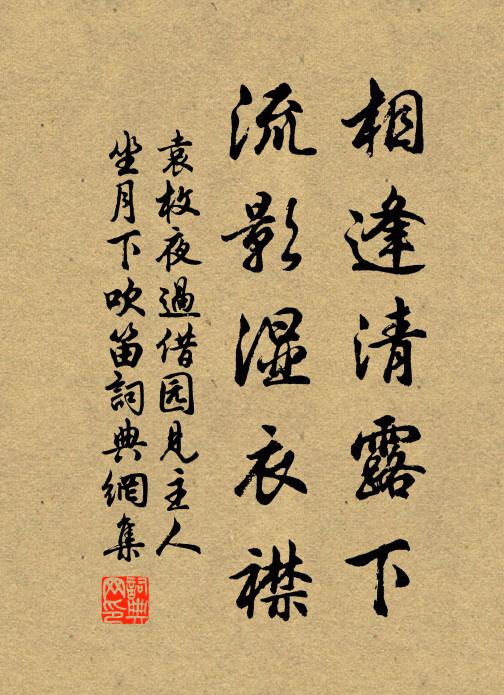 相逢清露下
流影湿衣襟
袁枚夜過借园見主人
坐月下吹笛詞典網集
詞典
网印